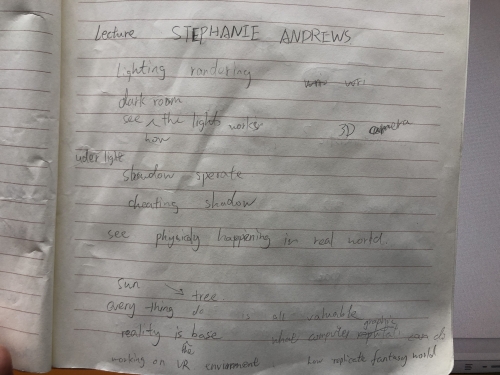 Lecture STEPHANIE ANDREWS
lighting randuring
dark room
see ^ the lights works 3D camera
how
uder light
shadow sperate
cheating shadow
see physicly happening in real world
sun → tree
every-thing do is all valuable graphic
reality is base what computer can do
working on the VR enviroment how replicate fantasy world